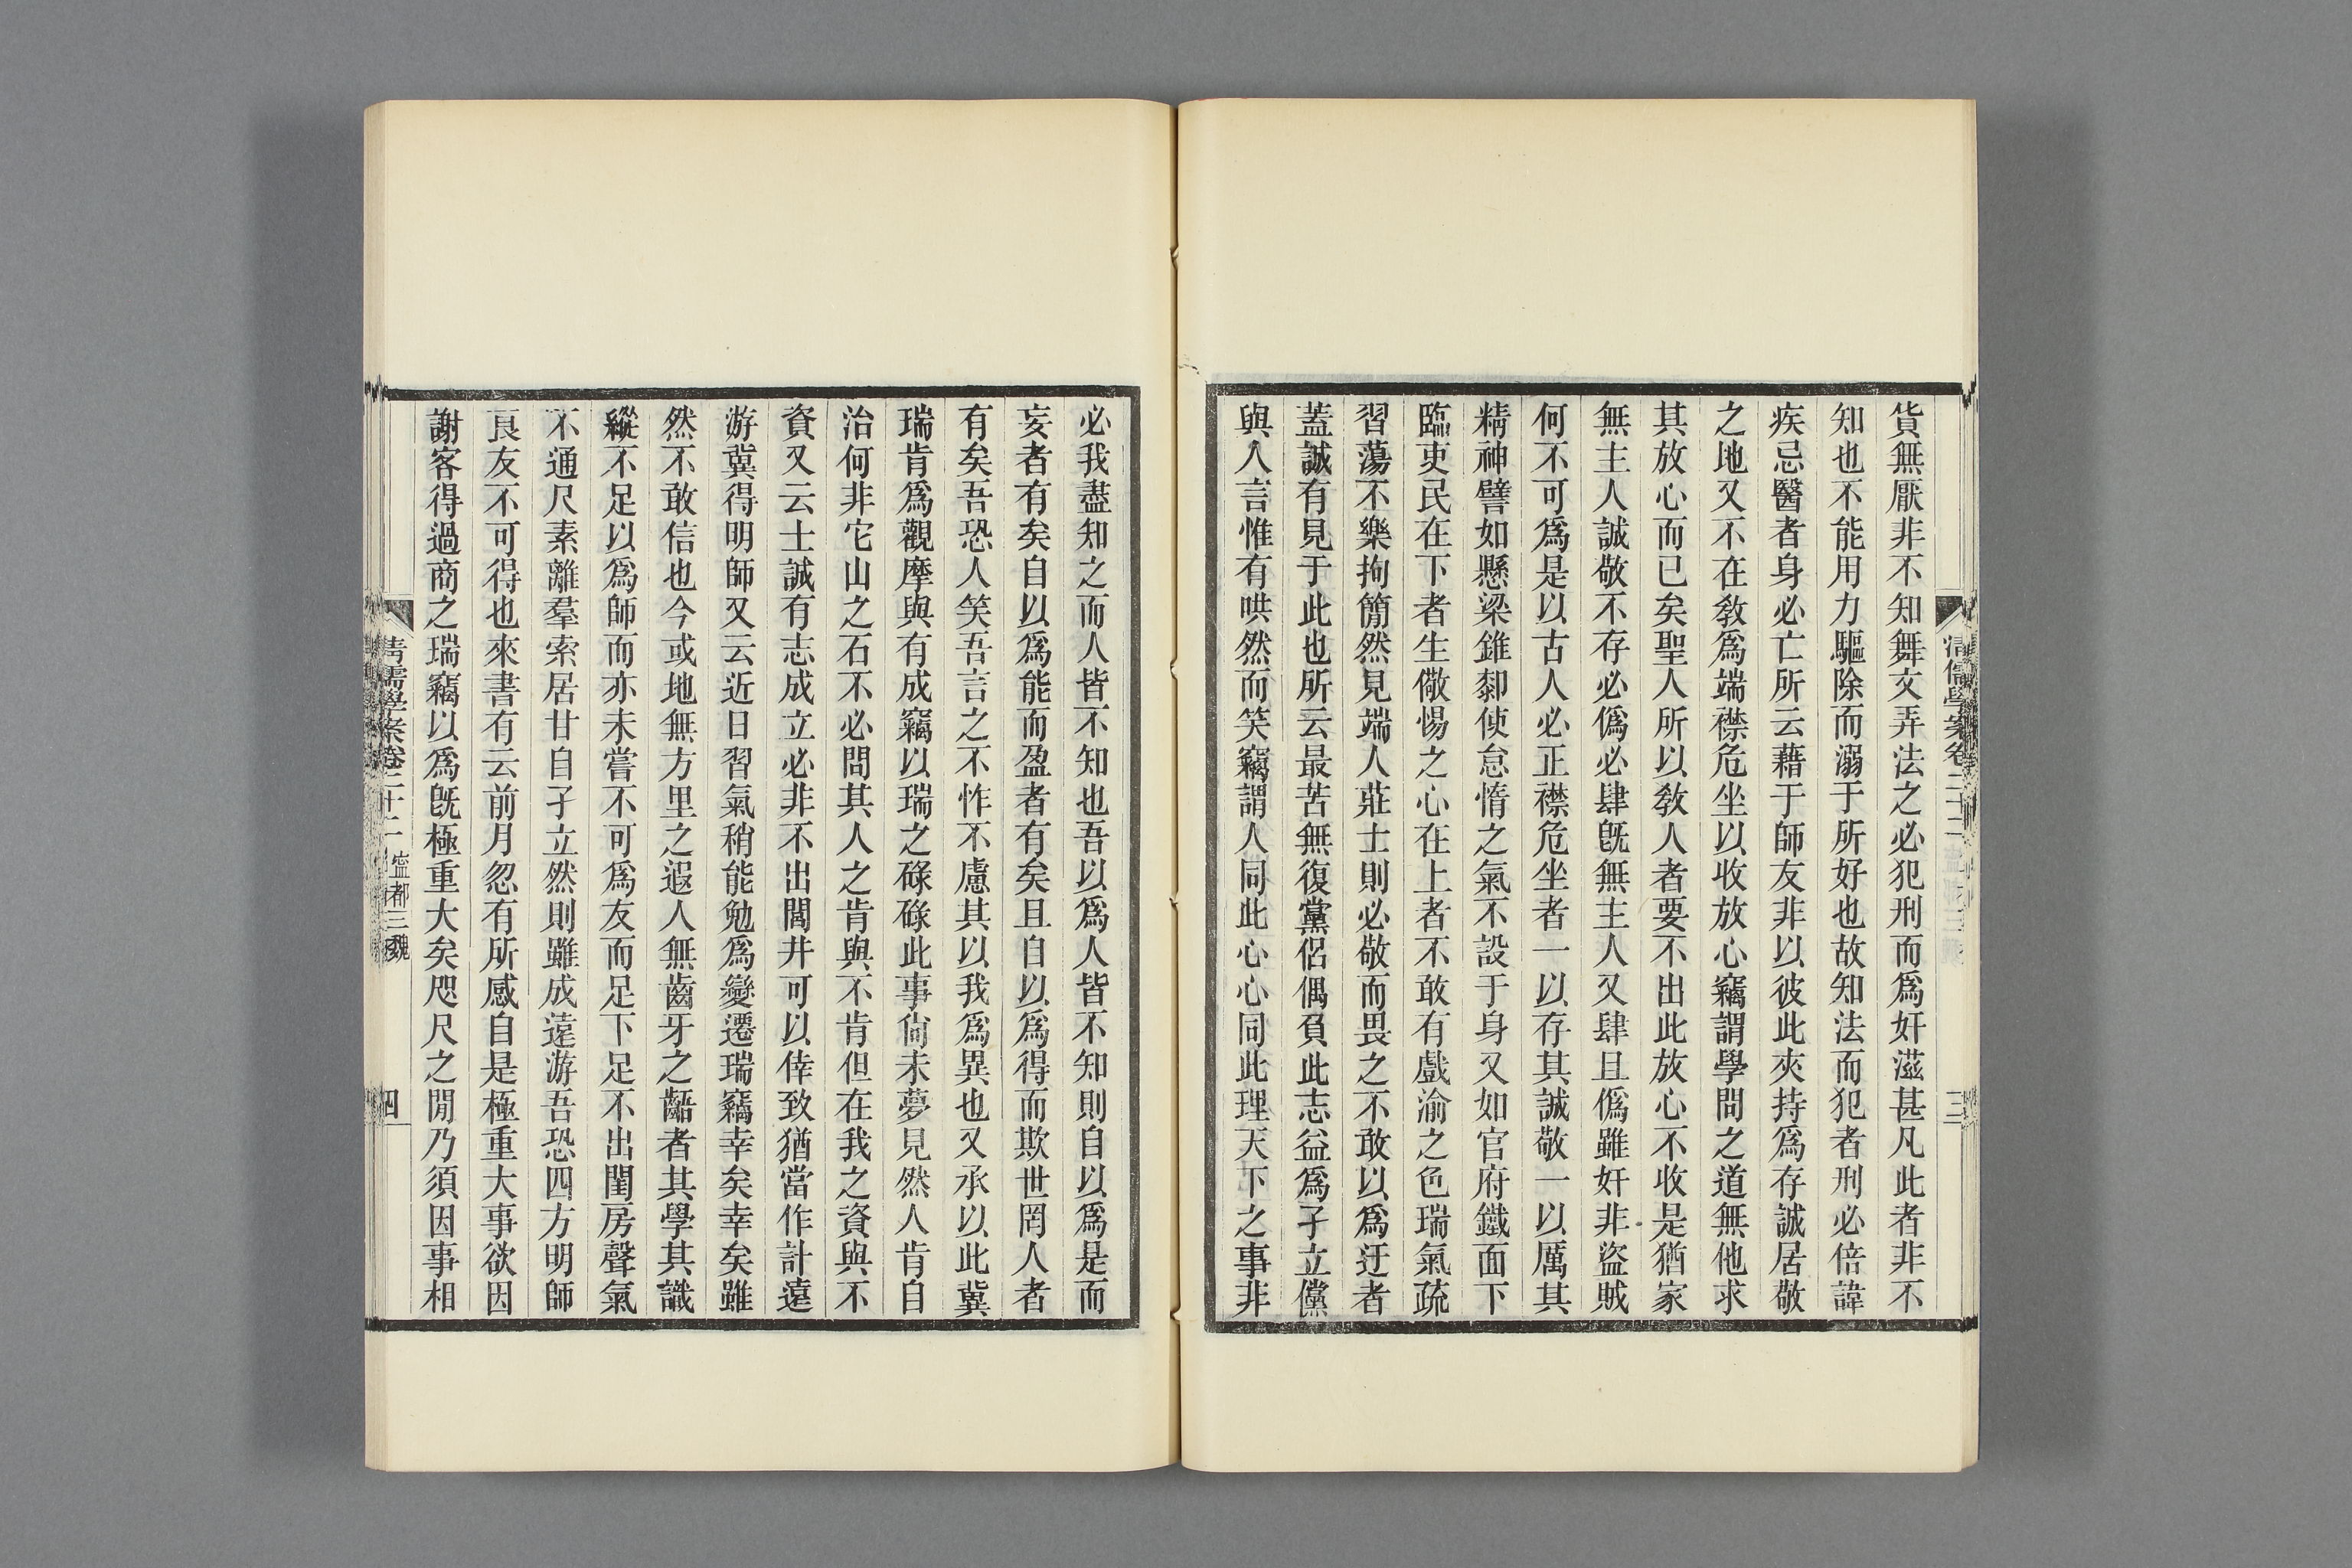 貨無厭非不知舞文弄法之必犯刑而爲奸滋甚凡此者非不
知也不能用力驅除而溺于所好也故知法而犯者刑必倍諱
疾忌醫者身必亡所云藉于師友非以彼此夾持爲存誠居敬
之地又不在敎爲端襟危坐以收放心竊謂學問之道無他求
其放心而已矣聖人所以敎人者要不出此放心不收是猶家
無主人誠敬不存必僞必肆旣無主人又肆且僞雖奸非盜賊
何不可爲是以古人必正襟危坐者一以存其誠敬一以厲其
精神譬如懸梁錐𨚫使怠惰之氣不設于身又如官府鐵面下
臨吏民在下者生儆惕之心在上者不敢有戲渝之色瑞氣疏
習蕩不樂拘簡然見端人莊士則必敬而畏之不敢以爲迂者
蓋誠有見于此也所云最苦無復黨侶偶負此志益爲孑立儻
與人言惟有哄然而笑竊謂人同此心心同此理天下之事非
清儒學案卷二十二
三
必我盡知之而人皆不知也吾以爲人皆不知則自以爲是而
妄者有矣自以爲能而盈者有矣且自以爲得而欺世罔人者
有矣吾恐人笑吾言之不怍不慮其以我爲異也又承以此冀
瑞肯爲觀摩與有成竊以瑞之碌碌此事尙未夢見然人肯自
治何非它山之石不必問其人之肯與不肯但在我之資與不
資又云士誠有志成立必非不出閭井可以倖致猶當作計遠
游冀得明師又云近日習氣稍能勉爲變遷瑞竊幸矣幸矣雖
然不敢信也今或地無方里之遐人無齒牙之齬者其學其識
縱不足以爲師而亦未嘗不可爲友而足下足不出閨房聲氣
不通尺素離羣索居甘自孑立然則雖成遠游吾恐四方明師
良友不可得也來書有云前月忽有所感自是極重大事欲因
謝客得過商之瑞竊以爲旣極重大矣咫尺之閒乃須因事相
清儒學案卷二十二
寧都三魏
四